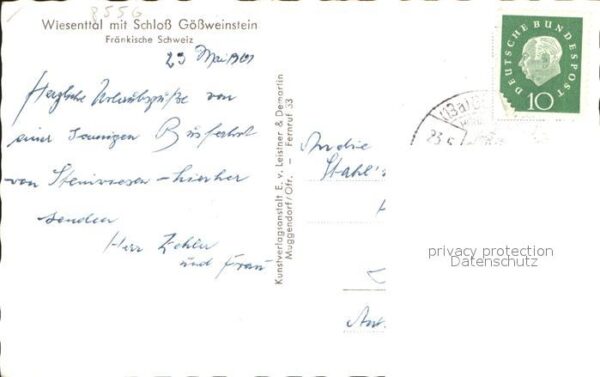 8556
Wiesenttal mit Schloß Gößweinstein
Fränkische Schweiz
23 Mai 1961
Herzliche Urlaubsgrüße von
einer sonnigen Busfahrt
von Steinwiesen – hierher
senden
Herr
und Frau
Kunstverlagsanstalt E. v. Leistner & Demartin
Muggendorf/Ofr. – Fernruf 33
An die
DEUTSCHE BUNDESPOST
10
(13a)
23.5.
privacy protection
Datenschutz